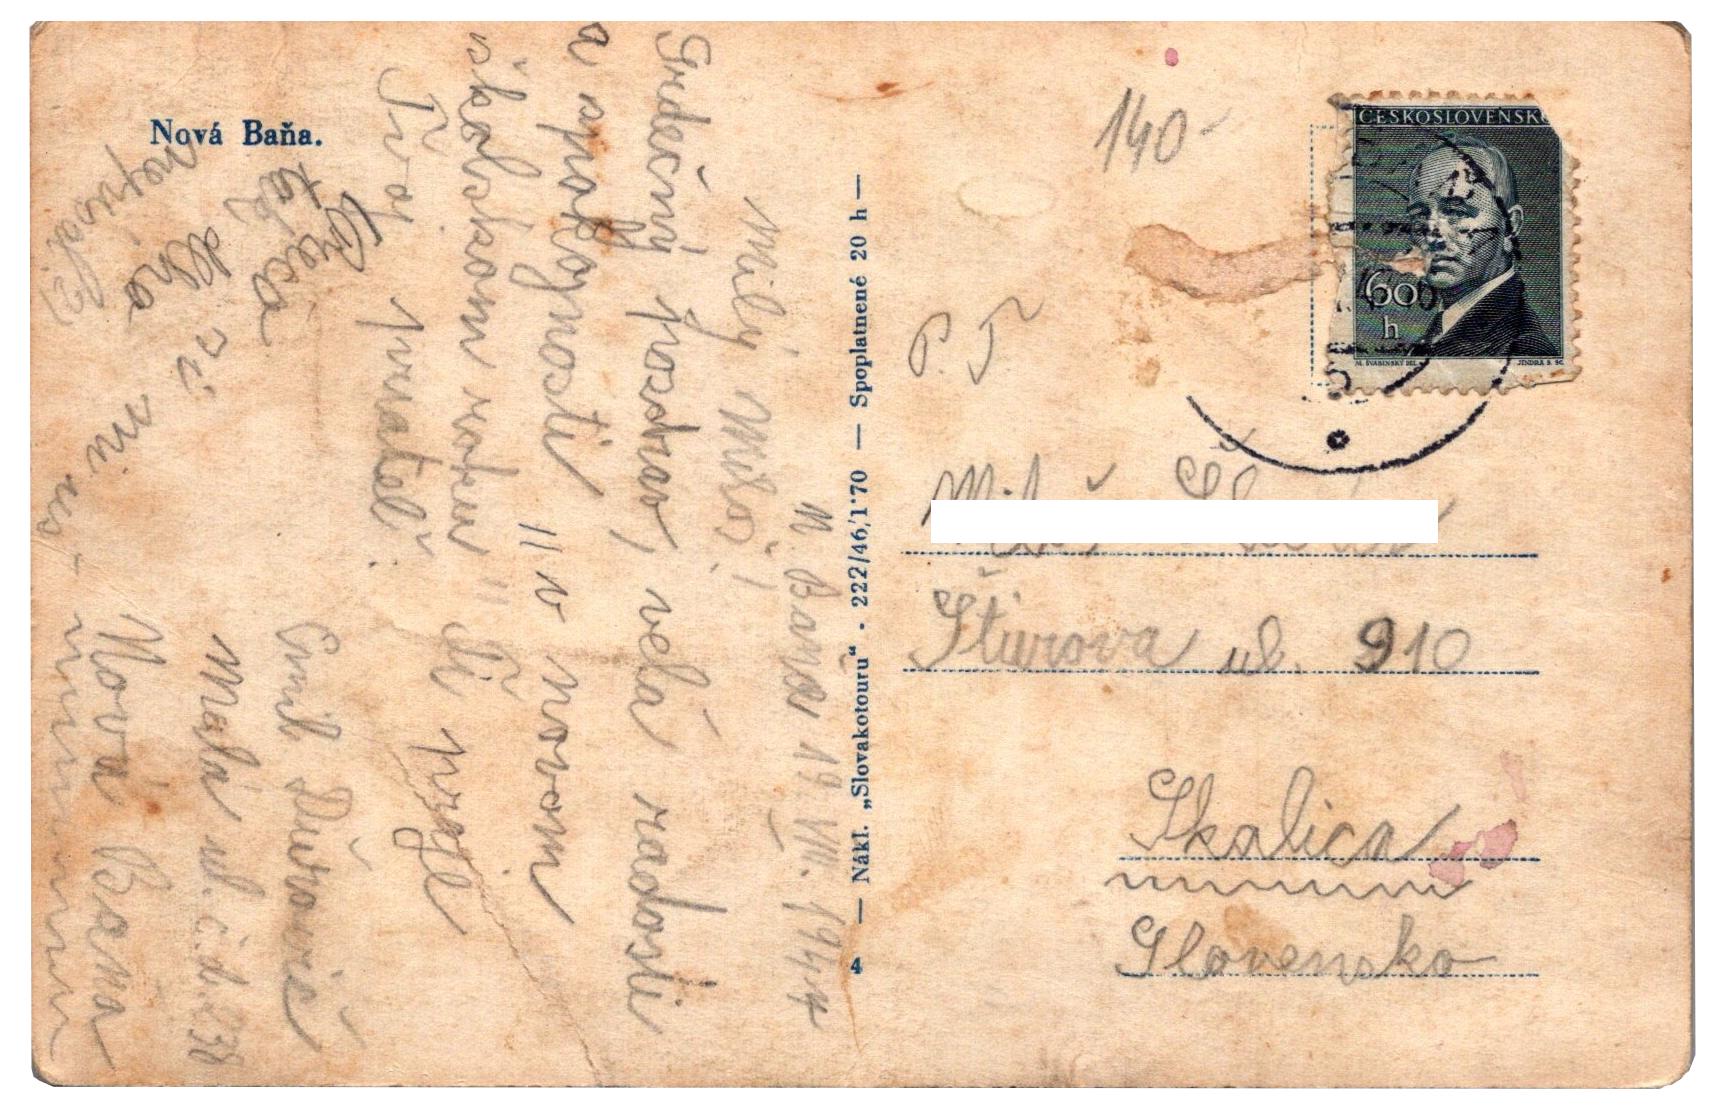 Nová Baňa.
N. Baňa 19. VIII. 1947
Milý Miko!
Srdečný pozdrav, vela radosti
a spokojnosti "v novom
školskom roku" Ti praje
Tvoj priateľ:
Emil
Malá ul. č.d. 238
Nová Bana
Prečo
tak
dlho
mi
— Nákl. „Slovakotouru“ - 222/46/1'70 — Spoplatnené 20 h —
4
140-
ČESKOSLOVENSKO
60
h
M. ŠVABINSKÝ DEL.
JINDRA S. SC.
P. T
Štúrova ul. 910
Skalica
Slovensko